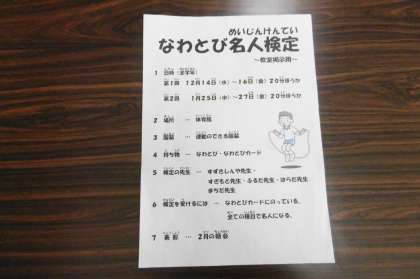 めいじんけんてい
なわとび名人検定
～教室掲示用～
1 日時（全学年）
第1回 12月14日（水）～16日（金）20分ほうか
第2回 1月25日（水）～27日（金）20分ほうか
2 場所 … 体育館
3 服装 … 運動のできる服装
4 持ち物 … なわとび・なわとびカード
5 検定の先生 … すずきしんや先生・
すぎもと先生・ふるた先生・はらだ先生
まちだ先生
6 検定を受けるには … なわとびカードにのっている、
全ての種目で名人になる。
7 表彰 … 2月の朝会